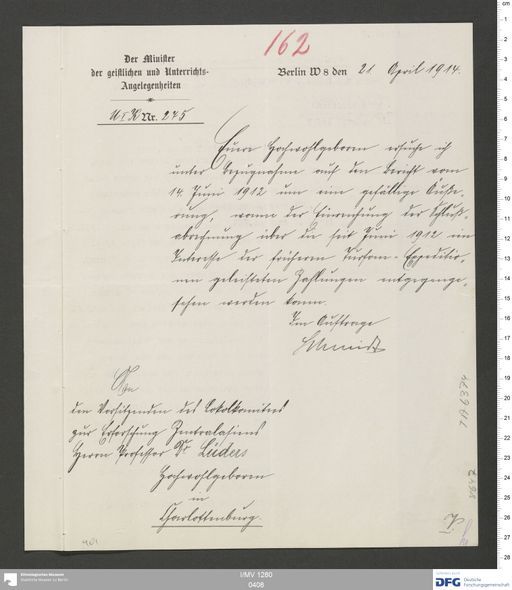 162
Der Minister
der geistlichen und Unterrichts-
Angelegenheiten
Berlin W 8 den 21 April 1914.
U I K Nr. 245
Euere Hochwohlgeboren ersuche ich
unter Bezugnahme auf den Bericht vom
14. Juni 1912 um eine gefällige Äuße-
rung, wann der Einreichung der Schluß-
abrechnung über die seit Juni 1912 im
Interesse der früheren Turfan-Expeditio-
nen geleisteten Zahlungen entgegenge-
sehen werden kann.
Im Auftrage
Schmidt
An
den Vorsitzenden des Lokalkomitees
zur Erforschung Zentralasiens
Herrn Professor Dr Lüders
Hochwohlgeboren
in
Charlottenburg.
Ethnologisches Museum
Staatliche Museen zu Berlin
I/MV 1260
0406
DFG Deutsche
Forschungsgemeinschaft